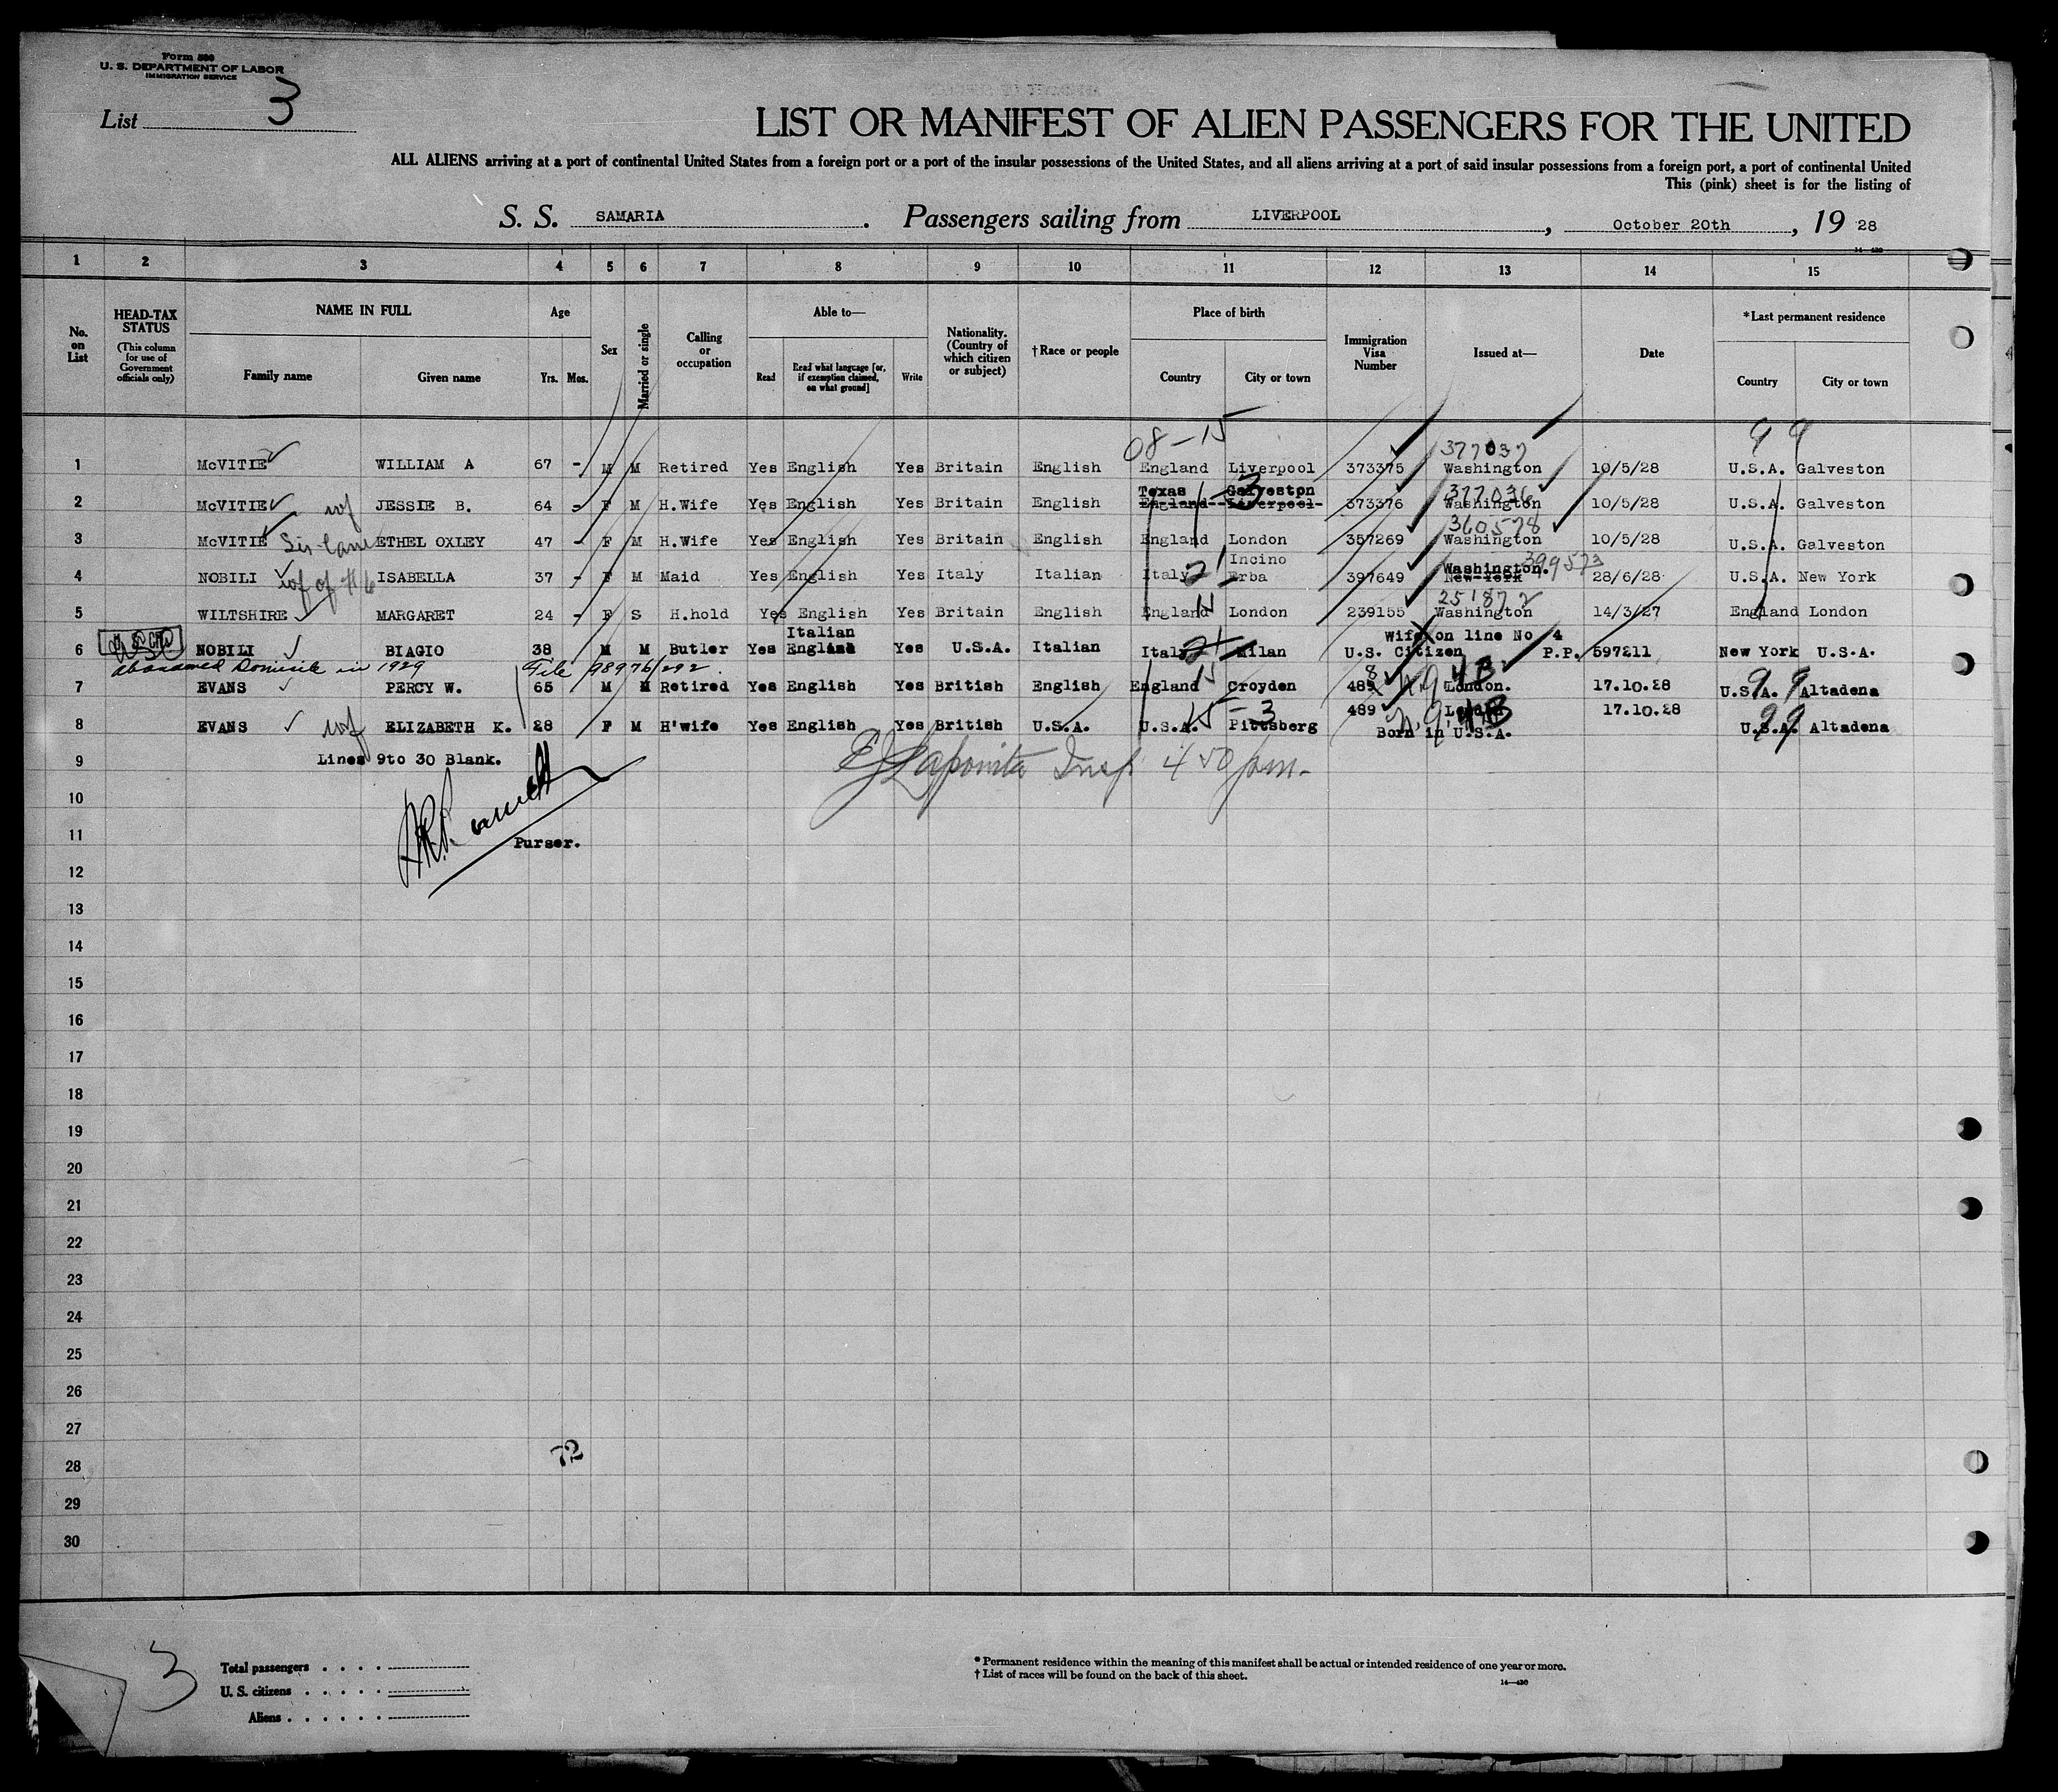 Form 500
U. S. DEPARTMENT OF LABOR
IMMIGRATION SERVICE
List 3
LIST OR MANIFEST OF ALIEN PASSENGERS FOR THE UNITED
ALL ALIENS arriving at a port of continental United States from a foreign port or a port of the insular possessions of the United States, and all aliens arriving at a port of said insular possessions from a foreign port, a port of continental United
This (pink) sheet is for the listing of
S. S. SAMARIA. Passengers sailing from LIVERPOOL, October 20th, 19 28
1 2 3 4 5 6 7 8 9 10 11 12 13 14 15
No. on List
HEAD-TAX STATUS
(This column for use of Government officials only)
NAME IN FULL
Family name
Given name
Age
Yrs. Mos.
Sex
Married or single
Calling or occupation
Able to—
Read
Read what language [or, if exemption claimed, on what ground]
Write
Nationality. (Country of which citizen or subject)
†Race or people
Place of birth
Country
City or town
Immigration Visa Number
Issued at—
Date
*Last permanent residence
Country
City or town
08-15 377037 9 9
1 McVITIE WILLIAM A 67 - M M Retired Yes English Yes Britain English England Liverpool 373375 Washington 10/5/28 U.S.A. Galveston
Texas Galveston 377036
2 McVITIE wf JESSIE B. 64 - F M H.Wife Yes English Yes Britain English England--Liverpool- 373376 Washington 10/5/28 U.S.A. Galveston
360578
3 McVITIE ETHEL OXLEY 47 - F M H.Wife Yes English Yes Britain English England London 357269 Washington 10/5/28 U.S.A. Galveston
Incino Washington. 399573
4 NOBILI wf of #6 ISABELLA 37 - F M Maid Yes English Yes Italy Italian Italy Erba 397649 New York 28/6/28 U.S.A. New York
251872
5 WILTSHIRE MARGARET 24 - F S H.hold Yes English Yes Britain English England London 239155 Washington 14/3/27 England London
Italian Wife on line No 4
6 NOBILI BIAGIO 38 M M Butler Yes England Yes U.S.A. Italian Italy Milan U.S. Citizen P.P. 597211 New York U.S.A.
abandoned Domicile in 1929 File 98976/292
7 EVANS PERCY W. 65 M M Retired Yes English Yes British English England Croyden 489 London. 17.10.28 U.S.A. Altadena
8 EVANS wf ELIZABETH K. 28 F M H'wife Yes English Yes British U.S.A. U.S.A. Pittsberg 489 London 17.10.28 U.S.A. Altadena
Born in U.S.A.
9 Lines 9to 30 Blank.
Insp 4 50 pm.
10
11 Purser.
12
13
14
15
16
17
18
19
20
21
22
23
24
25
26
27
72
28
29
30
3
Total passengers
U. S. citizens
Aliens
* Permanent residence within the meaning of this manifest shall be actual or intended residence of one year or more.
† List of races will be found on the back of this sheet.
14—430